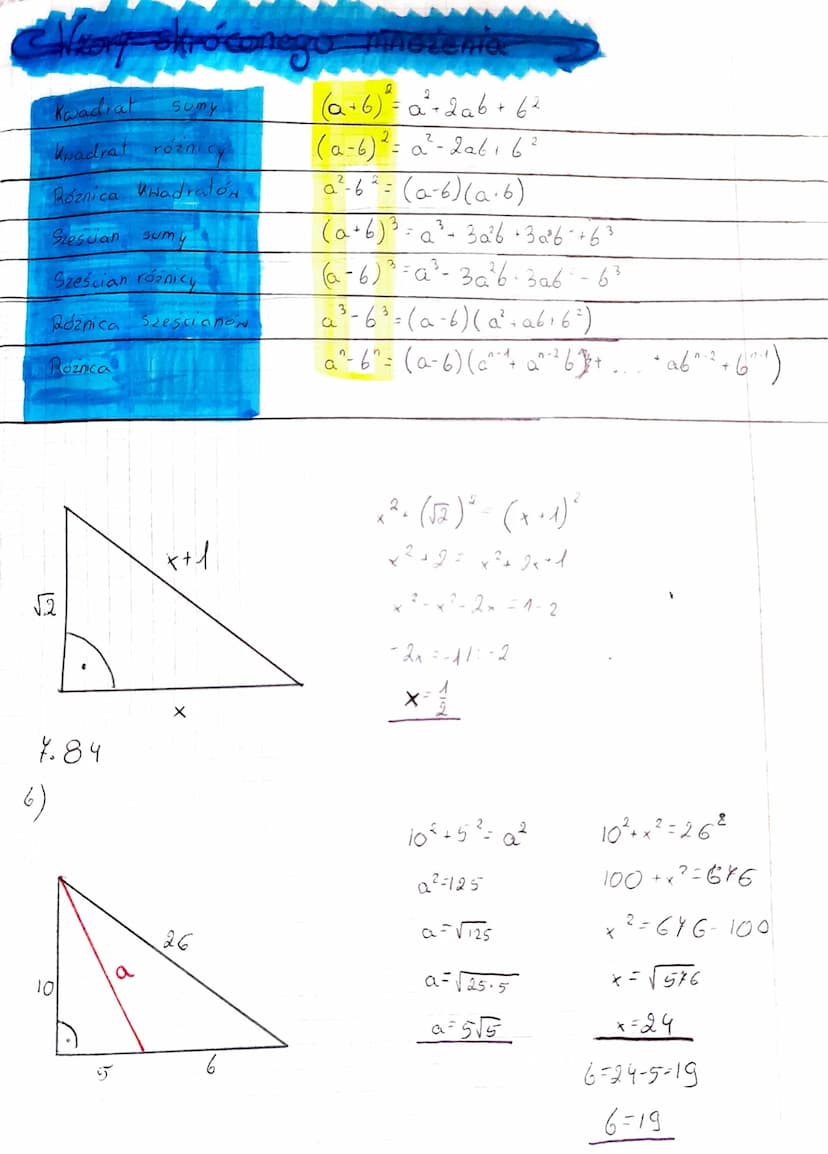 Wzory skróconego mnożenia
Kwadrat sumy (a+b)² = a² + 2ab + b²
Kwadrat różnicy (a-b)² = a² - 2ab + b²
Różnica kwadratów a² - b² = (a-b)(a+b)
Sześcian sumy (a+b)³ = a³ + 3a²b + 3ab² + b³
Sześcian różnicy (a-b)³ = a³ - 3a²b + 3ab² - b³
Różnica sześcianów a³ - b³ = (a-b)(a² + ab + b²)
Różnica aⁿ - bⁿ = (a-b)(aⁿ⁻¹ + aⁿ⁻²b + ... + abⁿ⁻² + bⁿ⁻¹)
√2
x+1
x
x² + (√2)² = (x+1)²
x² + 2 = x² + 2x + 1
x² - x² - 2x = 1 - 2
-2x = -1 /: -2
x = 1/2
7.84
b)
10
a
26
5
b
10² + 5² = a²
a² = 125
a = √125
a = √25·5
a = 5√5
10² + x² = 26²
100 + x² = 676
x² = 676 - 100
x = √576
x = 24
b = 24 - 5 = 19
b = 19